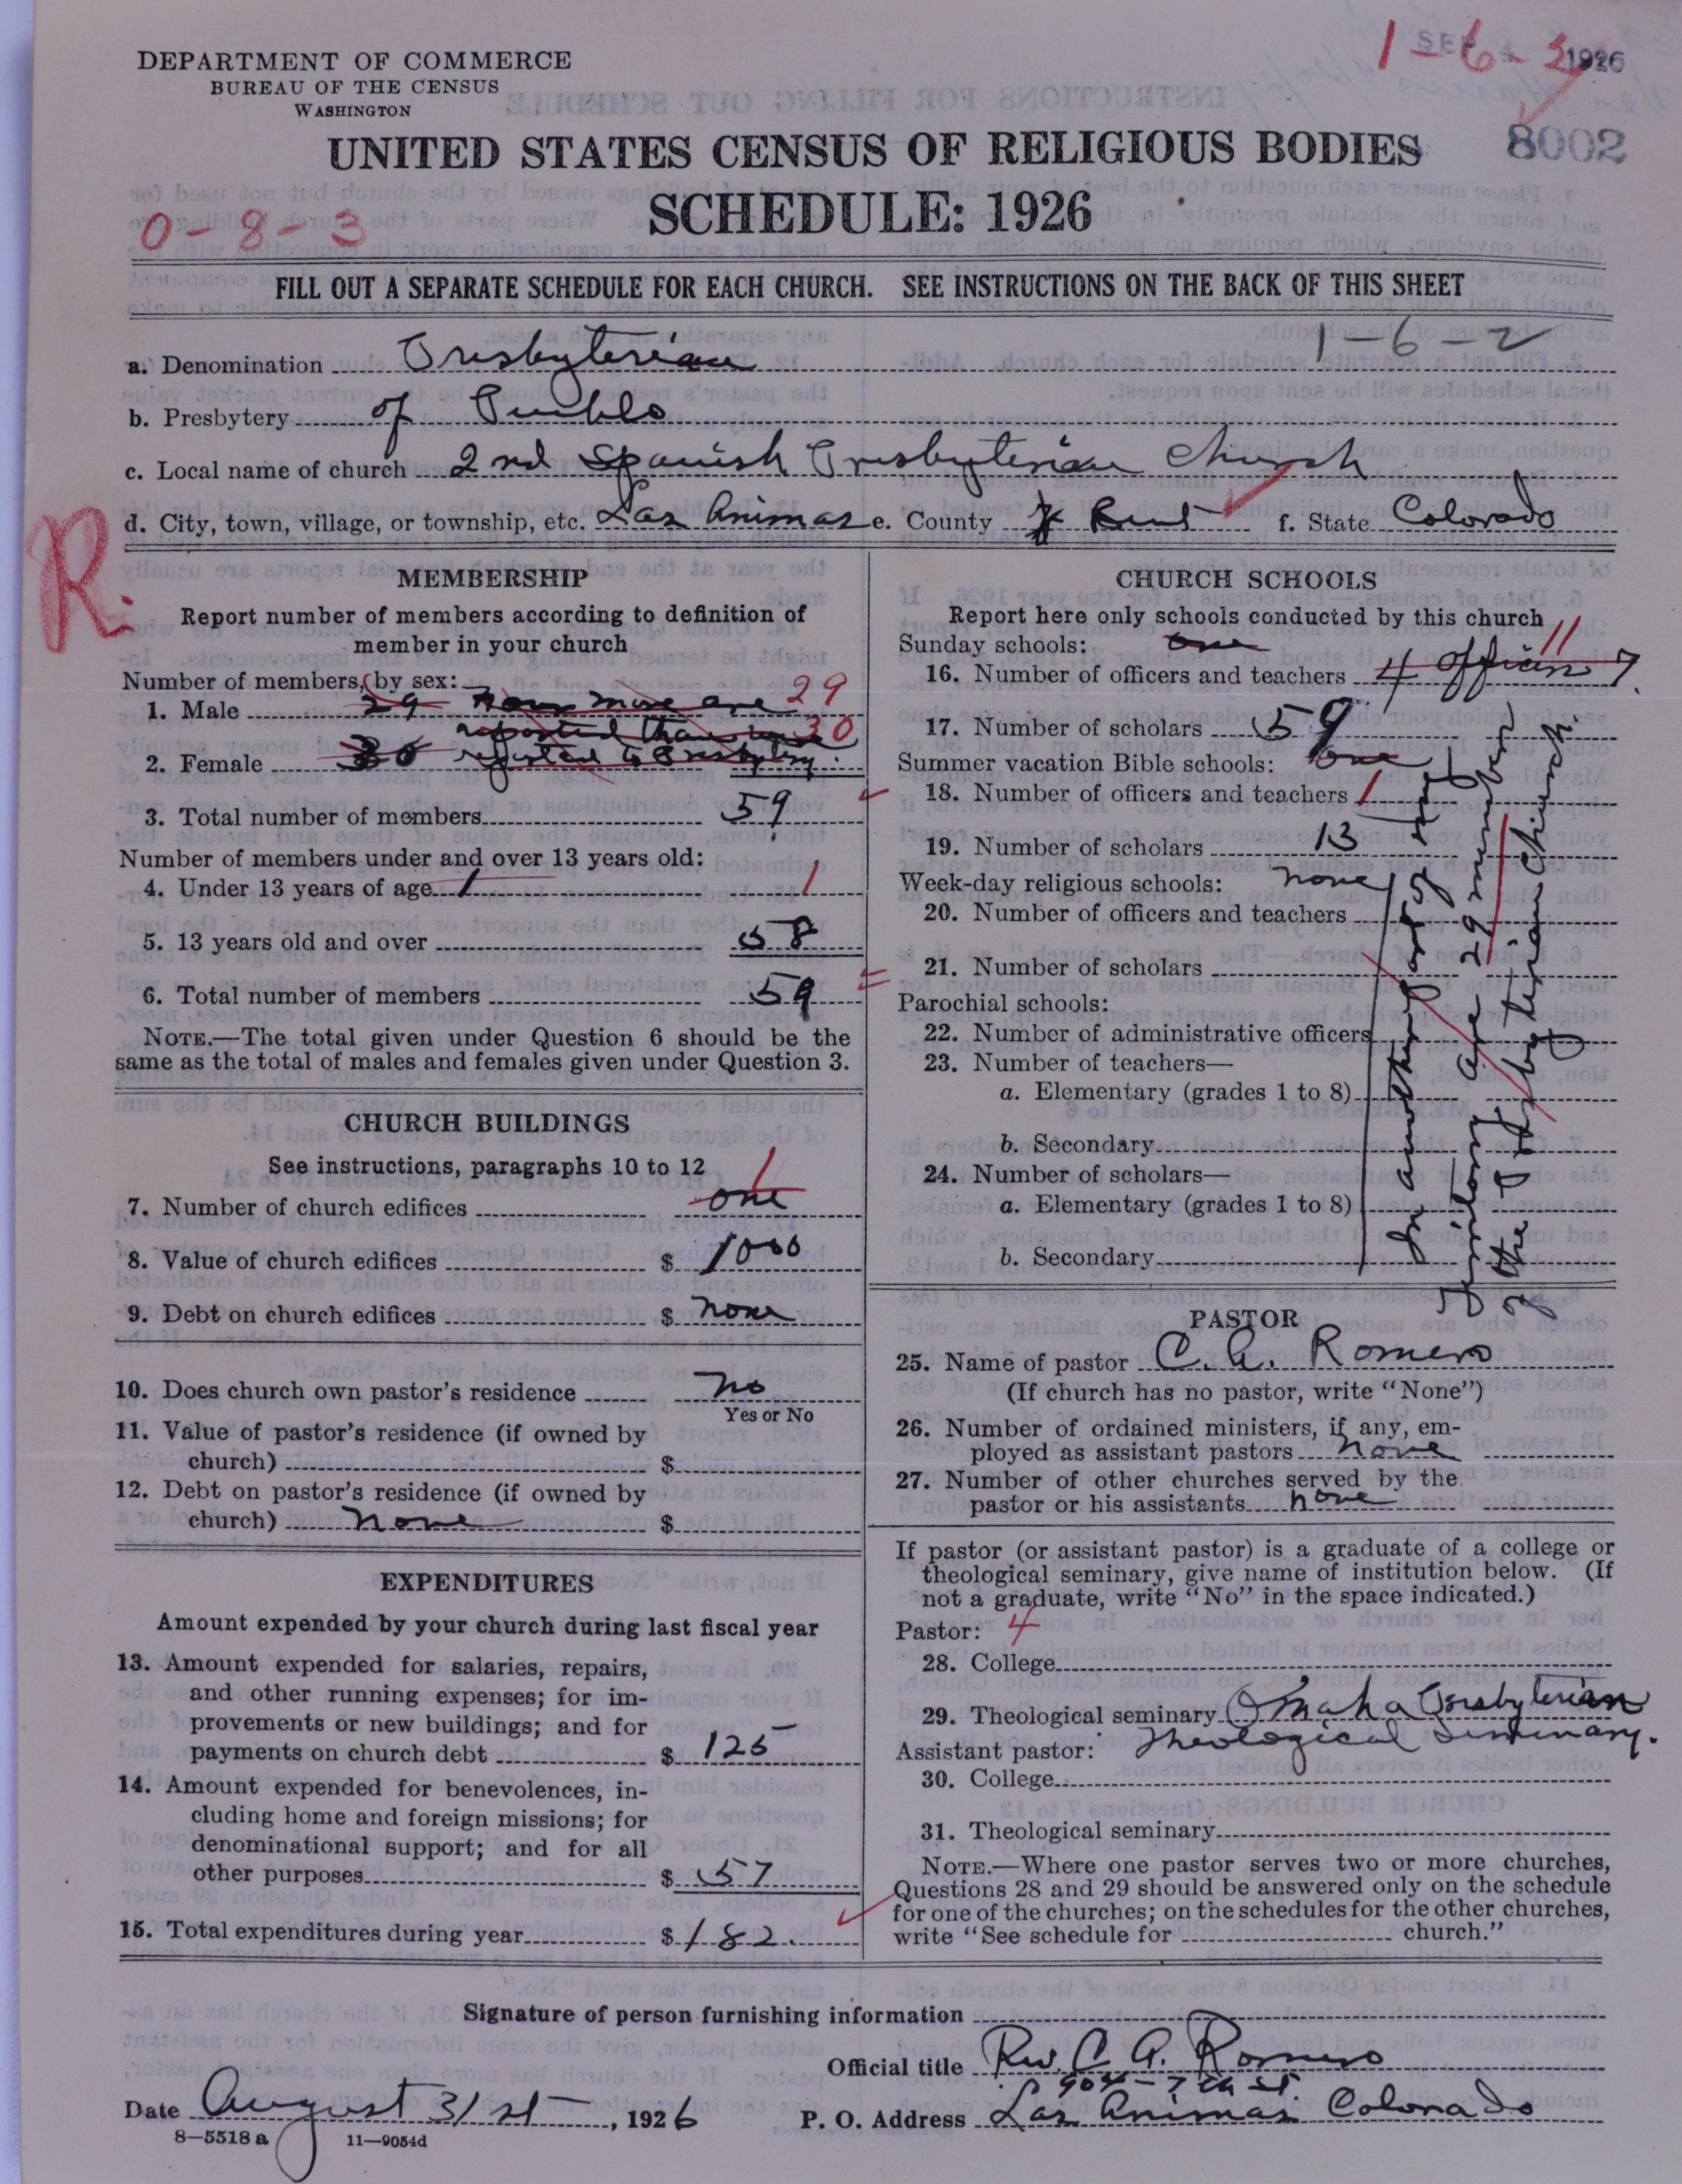 DEPARTMENT OF COMMERCE
BUREAU OF THE CENSUS
WASHINGTON
SEP 1926
1-6-3
8002
UNITED STATES CENSUS OF RELIGIOUS BODIES
SCHEDULE: 1926
0-8-3
FILL OUT A SEPARATE SCHEDULE FOR EACH CHURCH. SEE INSTRUCTIONS ON THE BACK OF THIS SHEET
1-6-2
a. Denomination Presbyterian
b. Presbytery of Pueblo
c. Local name of church 2nd Spanish Presbyterian Church
d. City, town, village, or township, etc. Las Animas e. County of Bent f. State Colorado
R.
MEMBERSHIP
Report number of members according to definition of
member in your church
Number of members, by sex:
1. Male 29 more are 29
reported than were 30
2. Female 30 reported to Presbytery.
3. Total number of members 59
Number of members under and over 13 years old:
4. Under 13 years of age 1 1
5. 13 years old and over 58
6. Total number of members 59
NOTE.—The total given under Question 6 should be the
same as the total of males and females given under Question 3.
CHURCH BUILDINGS
See instructions, paragraphs 10 to 12
7. Number of church edifices one 1
8. Value of church edifices $ 1000
9. Debt on church edifices $ none
10. Does church own pastor's residence no
Yes or No
11. Value of pastor's residence (if owned by
church) $
12. Debt on pastor's residence (if owned by
church) none $
EXPENDITURES
Amount expended by your church during last fiscal year
13. Amount expended for salaries, repairs,
and other running expenses; for im-
provements or new buildings; and for
payments on church debt $ 125-
14. Amount expended for benevolences, in-
cluding home and foreign missions; for
denominational support; and for all
other purposes $ 57
15. Total expenditures during year $ 182.
CHURCH SCHOOLS
Report here only schools conducted by this church
Sunday schools: one 11
16. Number of officers and teachers 4 officers 7.
17. Number of scholars 59
Summer vacation Bible schools: one
18. Number of officers and teachers 1
19. Number of scholars 13
Week-day religious schools: none
20. Number of officers and teachers
21. Number of scholars
Parochial schools:
22. Number of administrative officers
23. Number of teachers—
a. Elementary (grades 1 to 8)
b. Secondary
24. Number of scholars—
a. Elementary (grades 1 to 8)
b. Secondary
In another part of my
are 29 members
of the Presbyterian Church.
PASTOR
25. Name of pastor C. A. Romero
(If church has no pastor, write "None")
26. Number of ordained ministers, if any, em-
ployed as assistant pastors none
27. Number of other churches served by the
pastor or his assistants none
If pastor (or assistant pastor) is a graduate of a college or
theological seminary, give name of institution below. (If
not a graduate, write "No" in the space indicated.)
Pastor: 4
28. College
29. Theological seminary Omaha Presbyterian
Assistant pastor: Theological Seminary.
30. College
31. Theological seminary
NOTE.—Where one pastor serves two or more churches,
Questions 28 and 29 should be answered only on the schedule
for one of the churches; on the schedules for the other churches,
write "See schedule for church."
Signature of person furnishing information
Official title Rev. C. A. Romero
904-7th St.
Date August 31st, 1926 P. O. Address Las Animas Colorado
8-5518 a 11-9054d